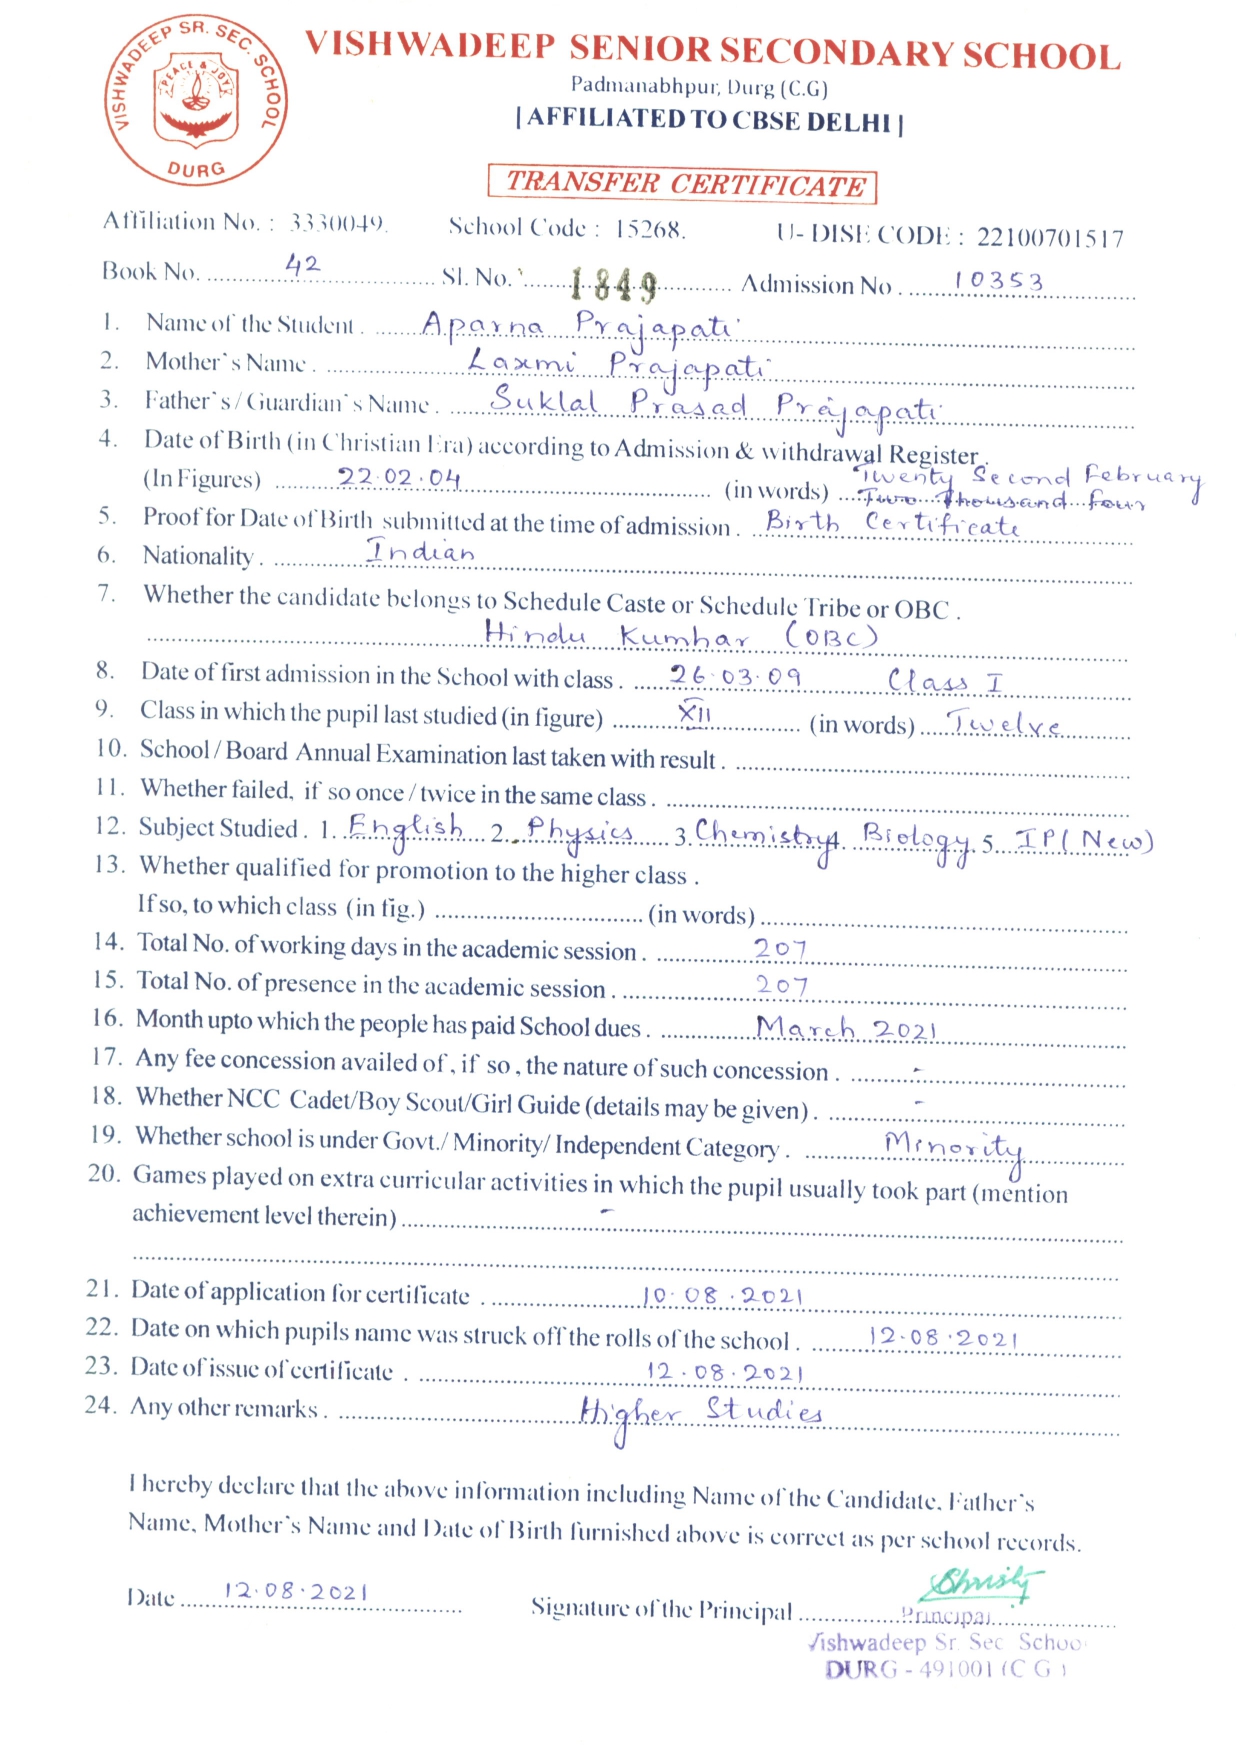 VISHWADEEP SR. SEC. SCHOOL
PEACE & JOY
DURG
VISHWADEEP SENIOR SECONDARY SCHOOL
Padmanabhpur, Durg (C.G)
| AFFILIATED TO CBSE DELHI |
TRANSFER CERTIFICATE
Affiliation No. : 3330049. School Code : 15268. U- DISE CODE : 22100701517
Book No. 42 Sl. No. 1849 Admission No . 10353
1. Name of the Student . Aparna Prajapati
2. Mother's Name . Laxmi Prajapati
3. Father's / Guardian's Name . Suklal Prasad Prajapati
4. Date of Birth (in Christian Era) according to Admission & withdrawal Register .
(In Figures) 22.02.04 (in words) Twenty Second February
Two Thousand four
5. Proof for Date of Birth submitted at the time of admission . Birth Certificate
6. Nationality . Indian
7. Whether the candidate belongs to Schedule Caste or Schedule Tribe or OBC .
Hindu Kumhar (OBC)
8. Date of first admission in the School with class . 26.03.09 Class I
9. Class in which the pupil last studied (in figure) XII (in words) Twelve
10. School / Board Annual Examination last taken with result .
11. Whether failed, if so once / twice in the same class .
12. Subject Studied . 1. English 2. Physics 3. Chemistry 4. Biology 5. IP (New)
13. Whether qualified for promotion to the higher class .
If so, to which class (in fig.) (in words)
14. Total No. of working days in the academic session . 207
15. Total No. of presence in the academic session . 207
16. Month upto which the people has paid School dues . March 2021
17. Any fee concession availed of , if so , the nature of such concession . -
18. Whether NCC Cadet/Boy Scout/Girl Guide (details may be given) . -
19. Whether school is under Govt./ Minority/ Independent Category . Minority
20. Games played on extra curricular activities in which the pupil usually took part (mention
achievement level therein) -
21. Date of application for certificate . 10.08.2021
22. Date on which pupils name was struck off the rolls of the school . 12.08.2021
23. Date of issue of certificate . 12.08.2021
24. Any other remarks . Higher Studies
I hereby declare that the above information including Name of the Candidate, Father's
Name, Mother's Name and Date of Birth furnished above is correct as per school records.
Date 12.08.2021 Signature of the Principal Shristy
Principal
Vishwadeep Sr. Sec Schoo
DURG - 491001 (C G )